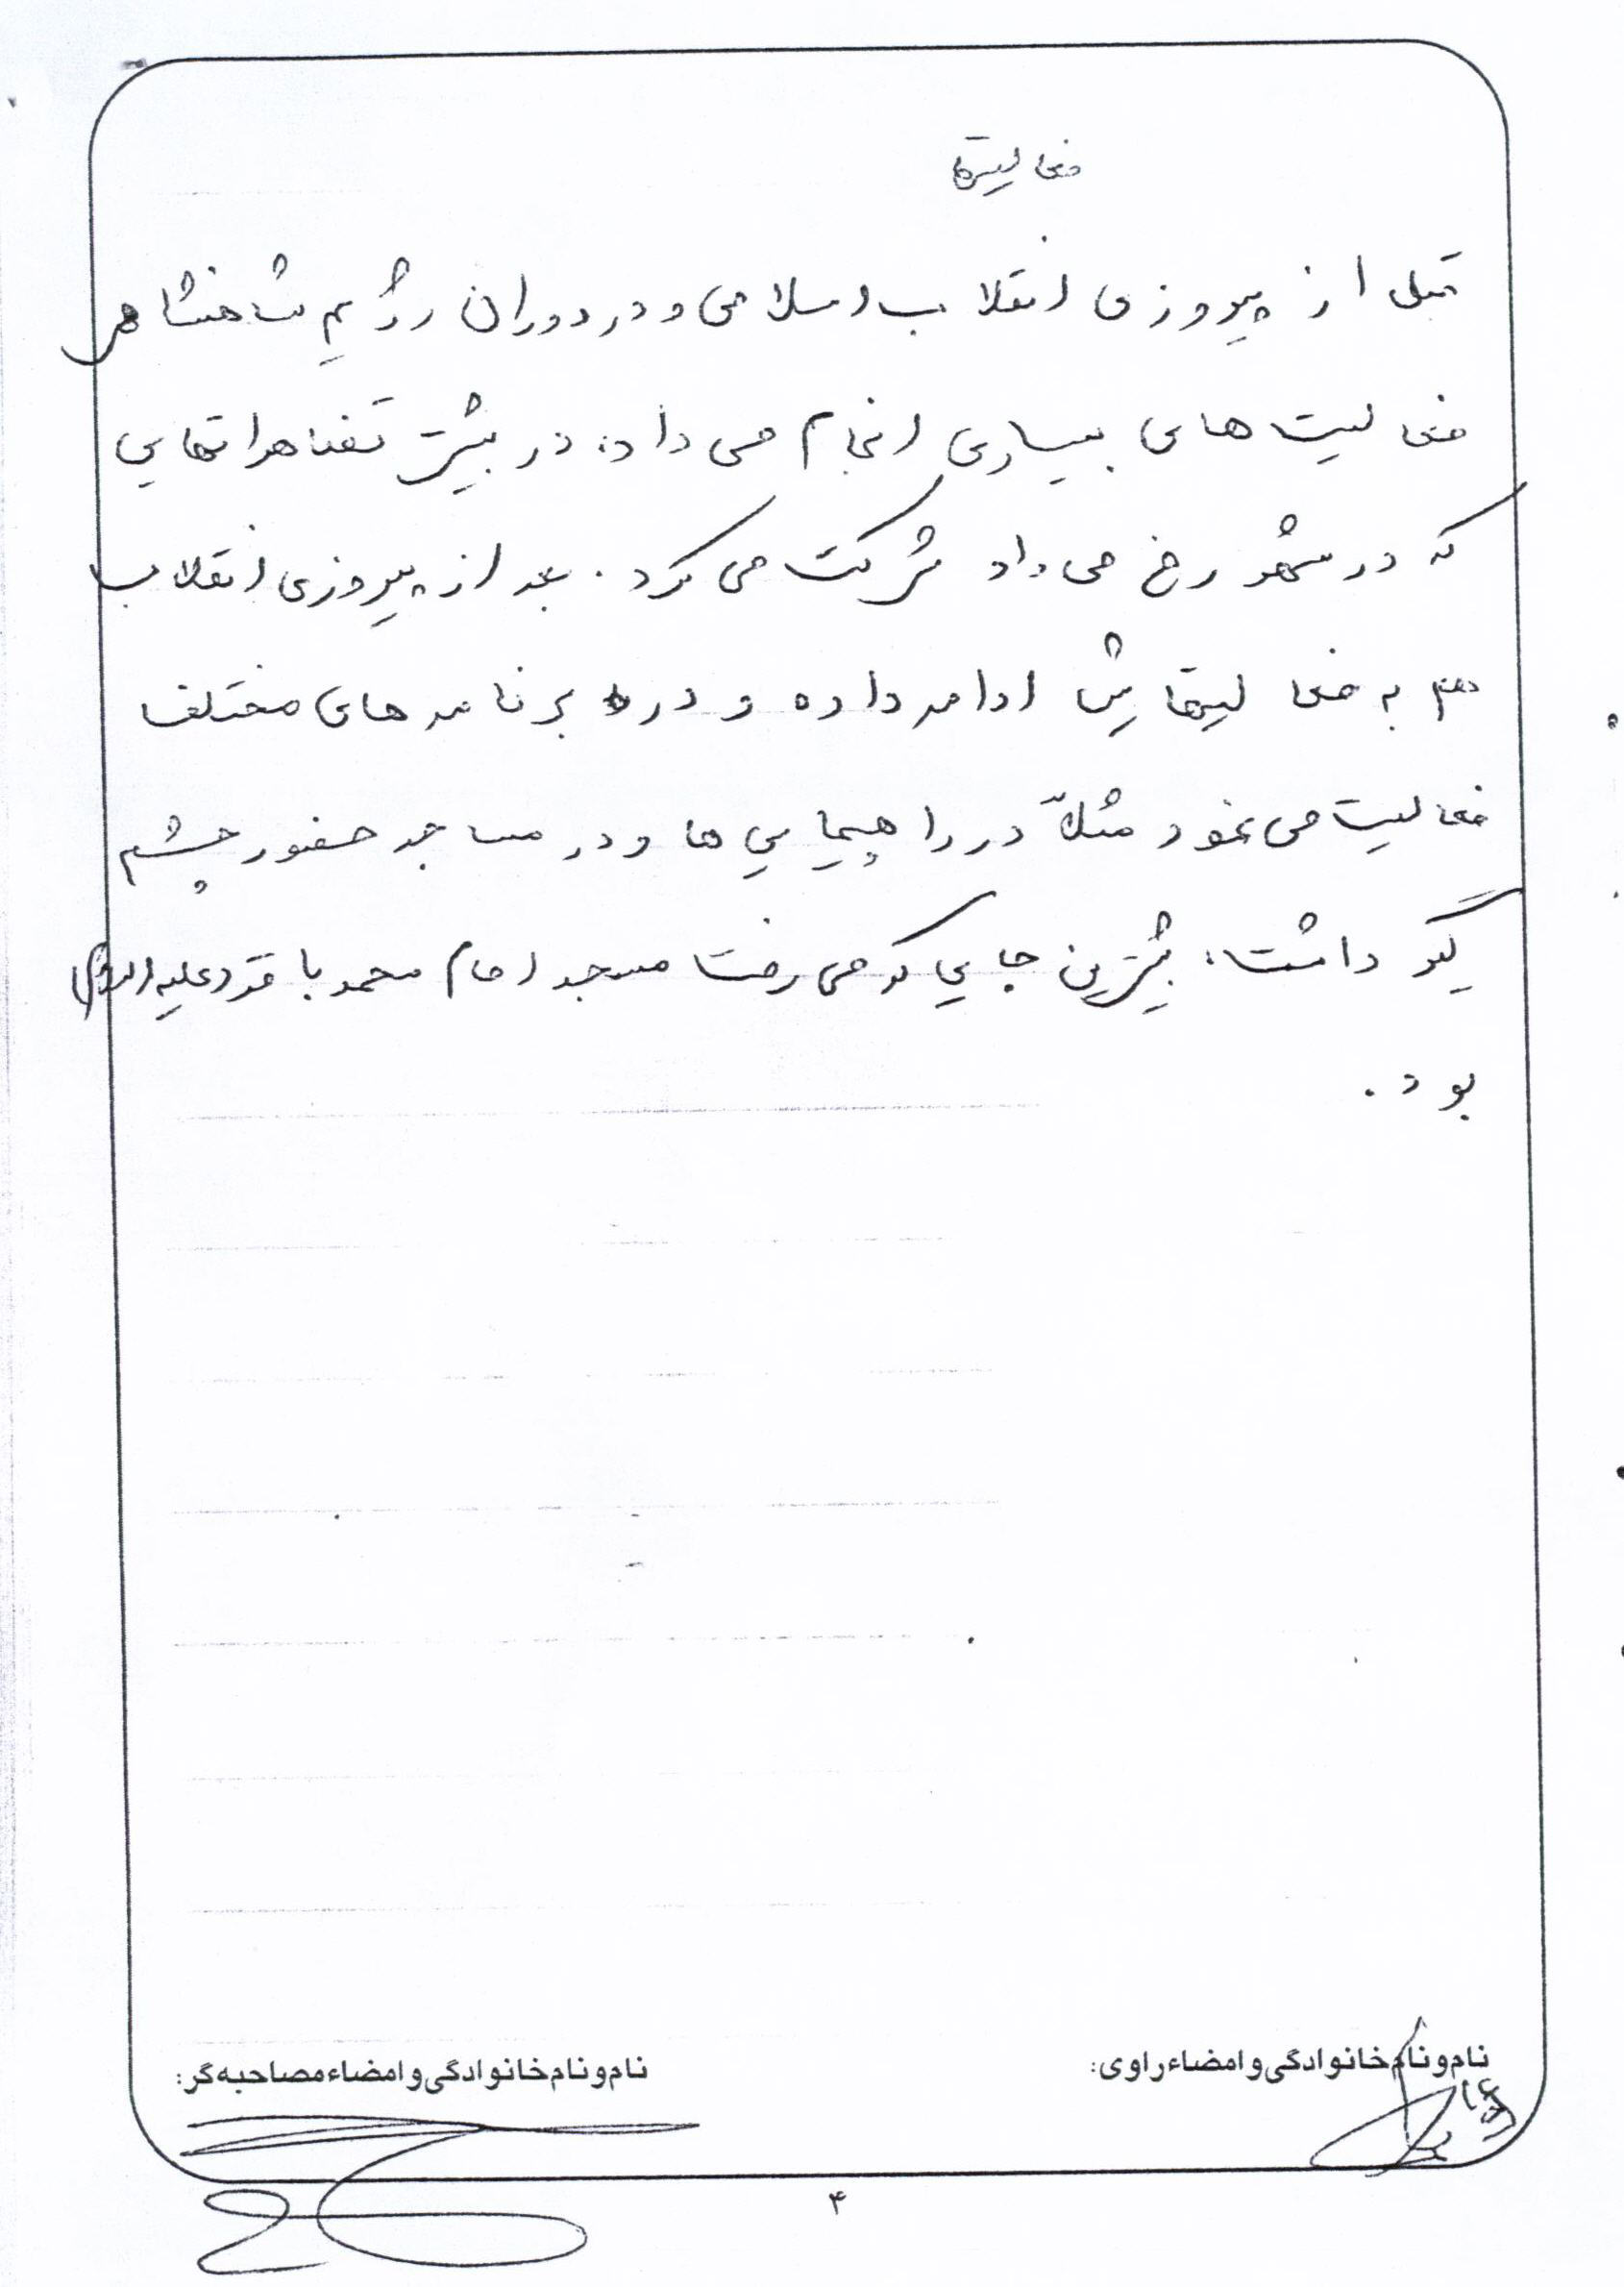 فعالیتها
قبل از پیروزی انقلاب اسلامی و در دوران رژیم شاهنشاهی
فعالیت های بسیاری انجام می داد، در بیشتر تفاهراتهایی
که در شهر رخ می داد شرکت می کرد. بعد از پیروزی انقلاب
هم به فعالیتهایش ادامه داده و در برنامه های مختلف
فعالیت می نمود مثلاً در راهپیمایی ها و در مساجد حضور چشم
گیر داشت، بیشترین جایی که می رفت مسجد امام محمد باقر (علیه السلام)
بود.
نام و نام خانوادگی و امضاء راوی:
نام و نام خانوادگی و امضاء مصاحبه گر:
۴